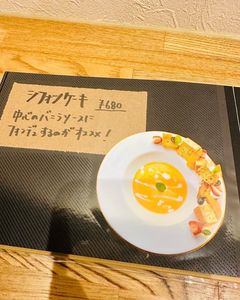 シフォンケーキ ¥680
中心のバニラソースに
フォンデュするのがオススメ!